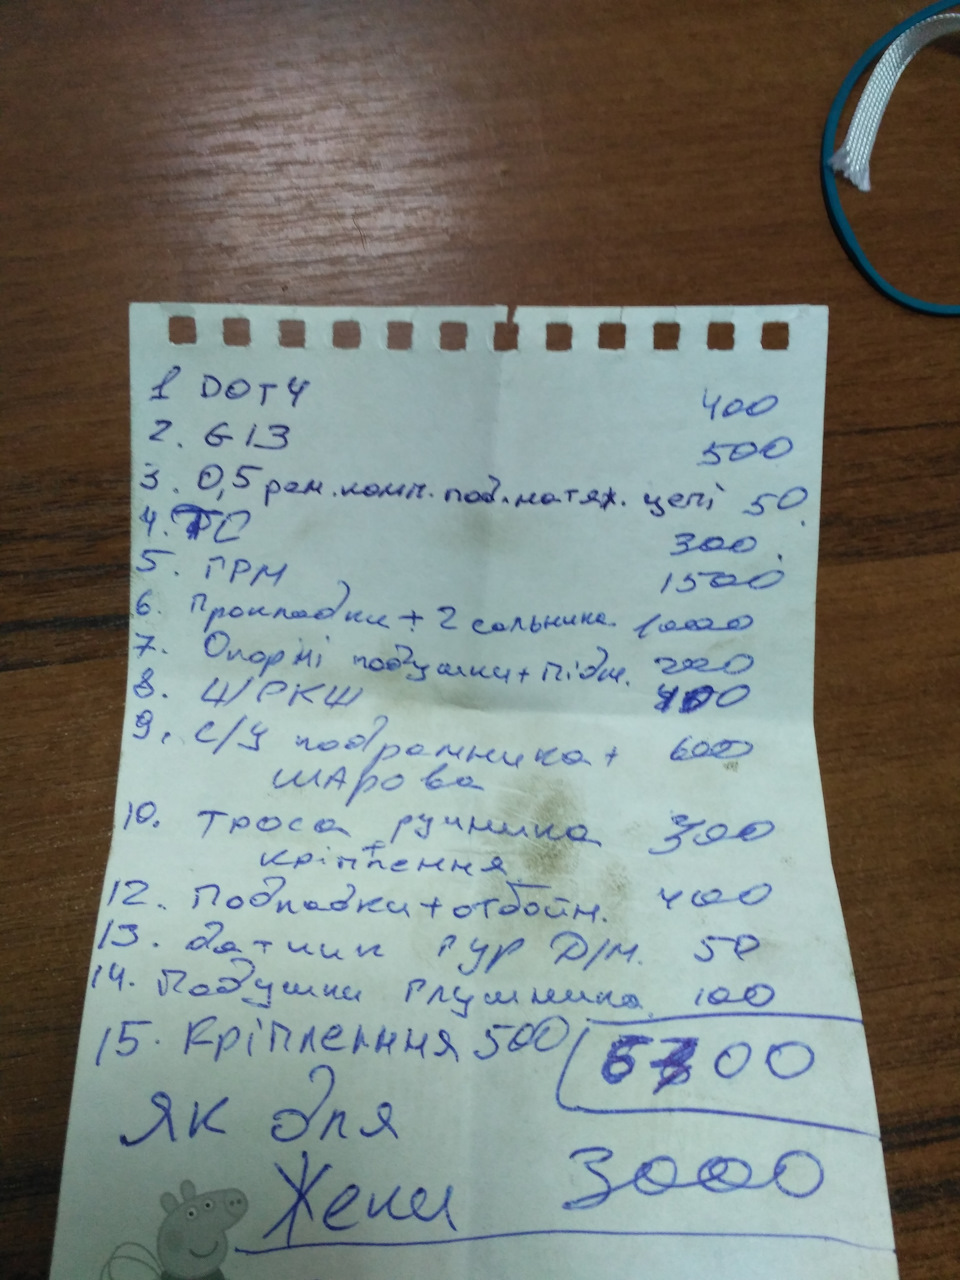 1 DOT4 400
2. G13 500
3. 0,5 рем.комп.под.натяж. цепі 50
4. ТС 300
5. ГРМ 1500
6. Прокладки + 2 сальника. 1000
7. Опорні подушки + підш. 200
8. Ш/РКШ 400
9. С/У подрамника + 600
шарова
10. Троса ручника 300
+ кріплення
12. Подпадки + отбойн. 400
13. датчик ГУР Д/М. 50
14. Подушки глушника 100
15. Кріпленння 500
00
Як для
Жени 3000